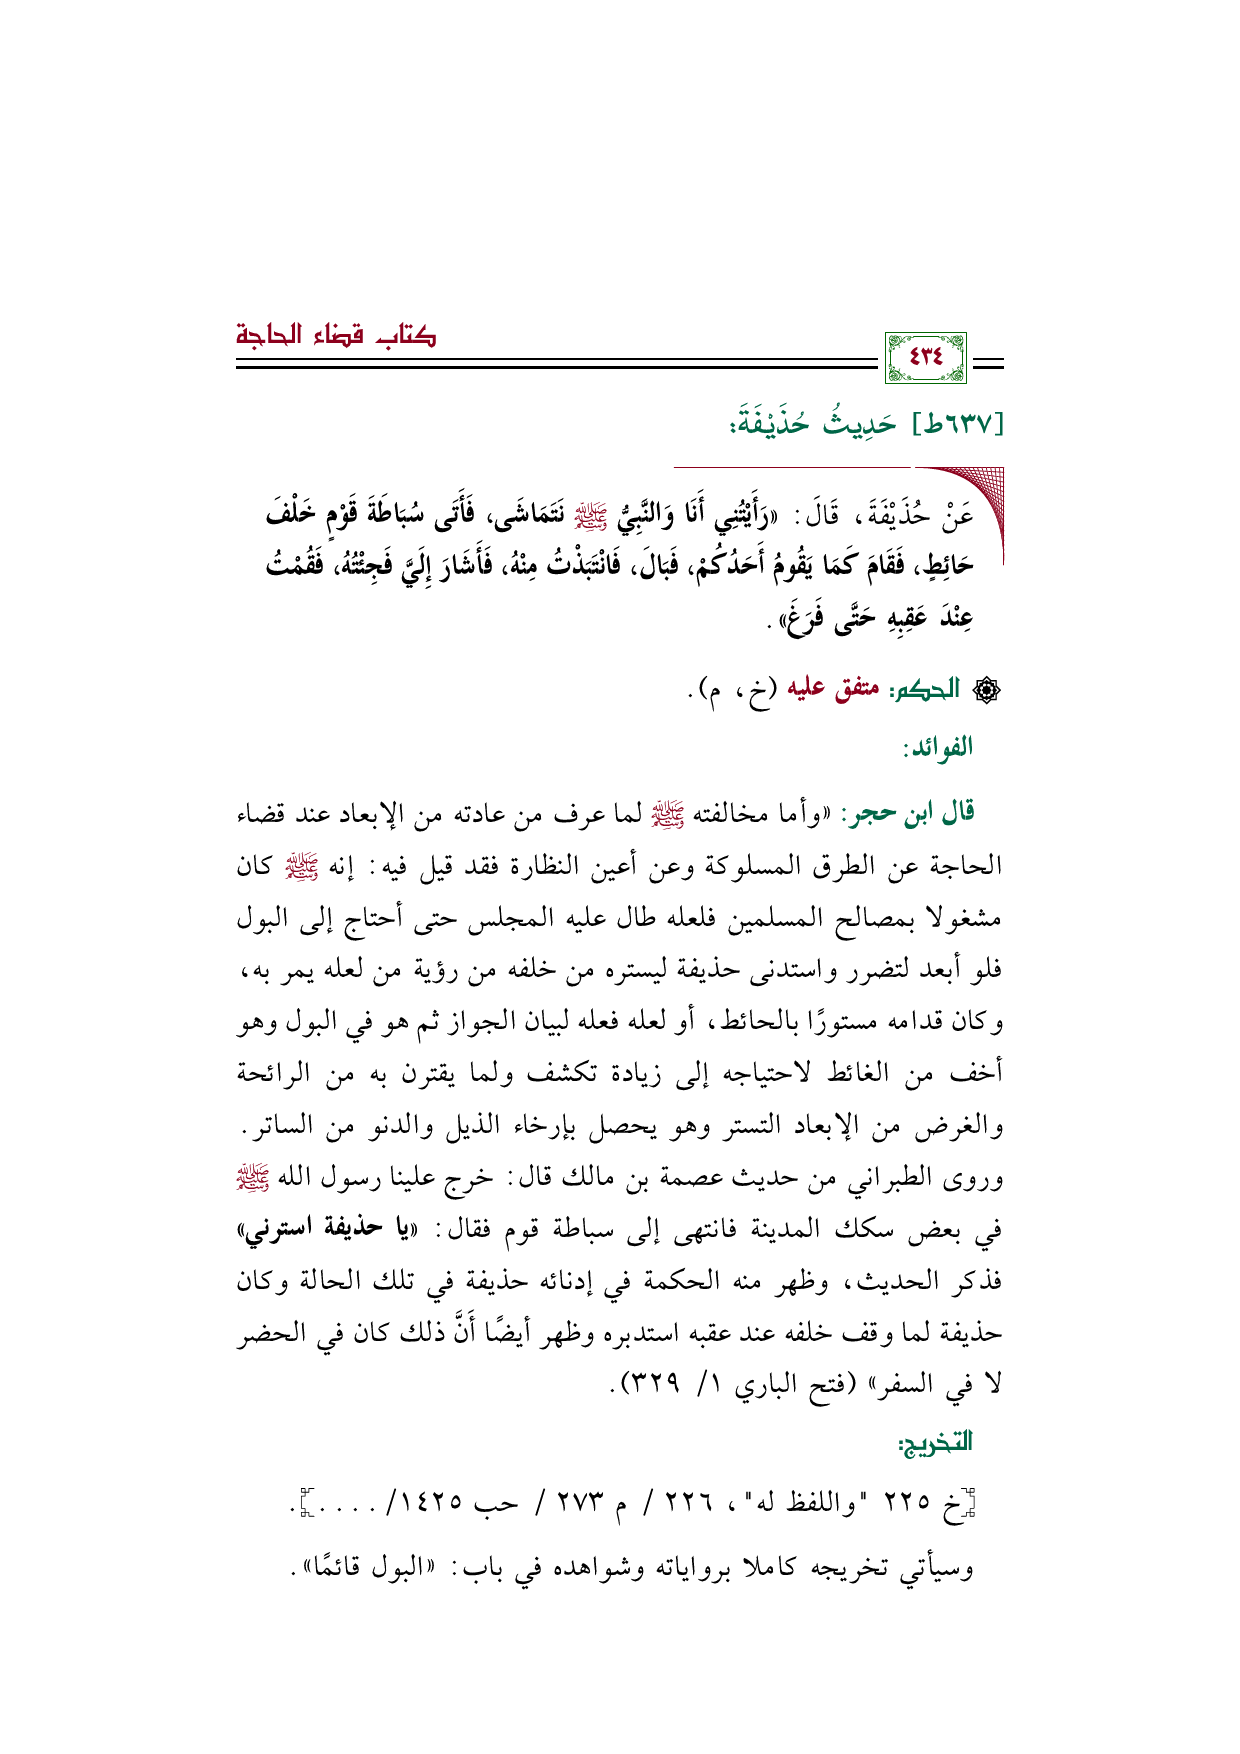 كتاب قضاء الحاجة
٤٣٤
[٦٣٧ط] حَدِيثُ حُذَيْفَةَ:
عَنْ حُذَيْفَةَ، قَالَ: «رَأَيْتُنِي أَنَا وَالنَّبِيُّ ﷺ نَتَمَاشَى، فَأَتَى سُبَاطَةَ قَوْمٍ خَلْفَ
حَائِطٍ، فَقَامَ كَمَا يَقُومُ أَحَدُكُمْ، فَبَالَ، فَانْتَبَذْتُ مِنْهُ، فَأَشَارَ إِلَيَّ فَجِئْتُهُ، فَقُمْتُ
عِنْدَ عَقِبِهِ حَتَّى فَرَغَ».
الحكم: متفق عليه (خ، م).
الفوائد:
قال ابن حجر: «وأما مخالفته ﷺ لما عرف من عادته من الإبعاد عند قضاء
الحاجة عن الطرق المسلوكة وعن أعين النظارة فقد قيل فيه: إنه ﷺ كان
مشغولا بمصالح المسلمين فلعله طال عليه المجلس حتى أحتاج إلى البول
فلو أبعد لتضرر واستدنى حذيفة ليستره من خلفه من رؤية من لعله يمر به،
وكان قدامه مستورًا بالحائط، أو لعله فعله لبيان الجواز ثم هو في البول وهو
أخف من الغائط لاحتياجه إلى زيادة تكشف ولما يقترن به من الرائحة
والغرض من الإبعاد التستر وهو يحصل بإرخاء الذيل والدنو من الساتر.
وروى الطبراني من حديث عصمة بن مالك قال: خرج علينا رسول الله ﷺ
في بعض سكك المدينة فانتهى إلى سباطة قوم فقال: «يا حذيفة استرني»
فذكر الحديث، وظهر منه الحكمة في إدنائه حذيفة في تلك الحالة وكان
حذيفة لما وقف خلفه عند عقبه استدبره وظهر أيضًا أَنَّ ذلك كان في الحضر
لا في السفر» (فتح الباري ١/ ٣٢٩).
التخريج:
[خ ٢٢٥ "واللفظ له"، ٢٢٦ / م ٢٧٣ / حب ١٤٢٥/ ....].
وسيأتي تخريجه كاملا برواياته وشواهده في باب: «البول قائمًا».